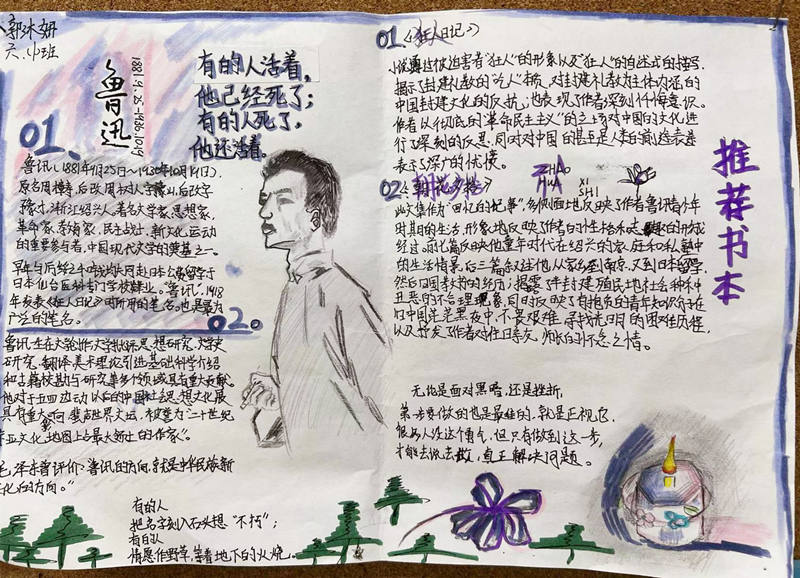 郭沐妍
六.
鲁迅
1881.9.25-1936.10.19
有的人活着,
他已经死了;
有的人死了,
他还活着。
01.
鲁迅(1881年9月25日~1936年10月19日),
原名周樟寿,后改周树人,字豫山,后改字
豫才,浙江绍兴人,著名文学家、思想家、
革命家、教育家、民主战士,新文化运动
的重要参与者,中国现代文学的奠基之一。
早年与厉绥之和钱均夫同赴日本公费留学于
日本仙台医科专门学校肄业。“鲁迅”,1918
年发表《狂人日记》时所用的笔名,也是最为
广泛的笔名。
02.
鲁迅一生在文学创作、文学批评、思想研究、文学史
研究、翻译、美术理论引进、基础科学介绍
和古籍校勘与研究等多个领域具有重大贡献。
他对于五四运动以后的中国社会思想文化发展
具有重大影响,蜚声世界文坛,被誉为“二十世纪
东亚文化地图上占最大领土的作家”。
毛泽东曾评价:“鲁迅的方向,就是中华民族新
文化的方向。”
有的人
把名字刻入石头想“不朽”;
有的人
情愿作野草,等着地下的火烧。
01.《狂人日记》
小说通过被迫害者“狂人”的形象以及“狂人”的自述式的描写,
揭示了封建礼教的“吃人”本质,
中国封建文化的反抗;也表现了作者深刻的忏悔意识。
作者以彻底的“革命民主主义”的立场对中国的文化进
行了深刻的反思,同时对中国的甚至是人类的前途表达
表示了深广的忧愤。
02.《朝花夕拾》
ZHAO
HUA
XI
SHI
此文集作为“回忆的记事”,多侧面地反映了作者鲁迅青少年
时期的生活,形象地反映了作者的性格和志趣的形成
经过。前七篇反映他童年时代在绍兴的家庭和私塾中
的生活情景,后三篇叙述他从家乡到南京,又到日本留学,
然后回国教书的经历;揭露了半封建殖民地社会种种
丑恶的不合理现象,同时反映了有抱负的青年知识分子在
旧中国茫茫黑夜中,不畏艰难,寻找光明的困难历程,
以及抒发了作者对往日亲友、师长的怀念之情。
推荐书本
无论是面对黑暗,还是挫折,
第一步要做的也是最难的,就是正视它,
很多人没这个勇气,但只有做到这一步,
才能去做,真正解决问题。